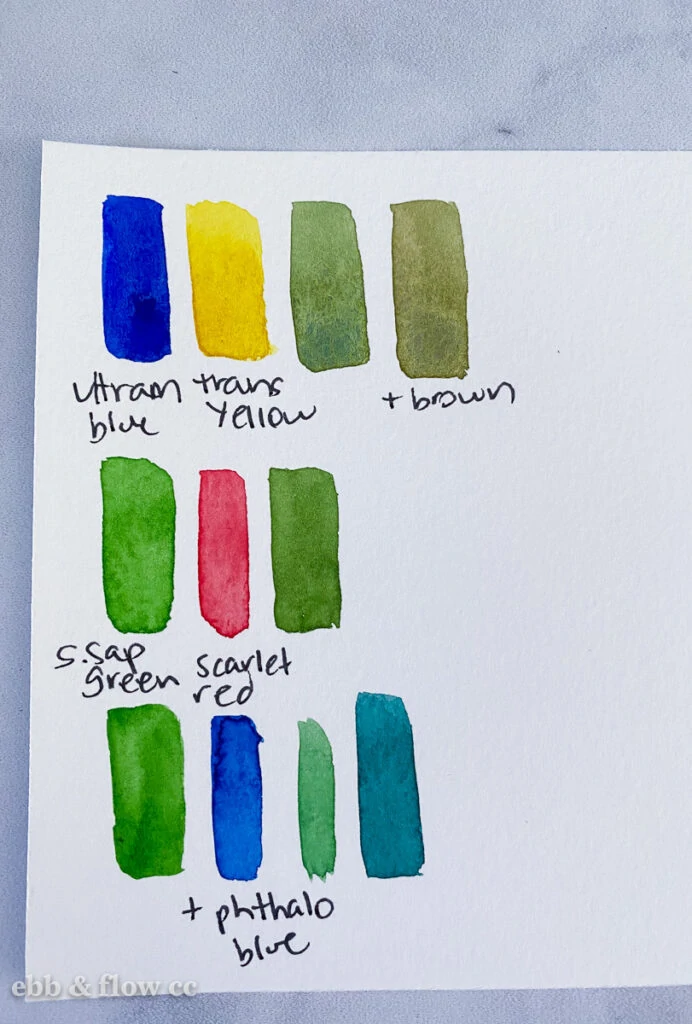 Ultram trans
blue Yellow
+ brown
S.Sap scarlet
green red
+ phthalo
blue
ebb & flow cc